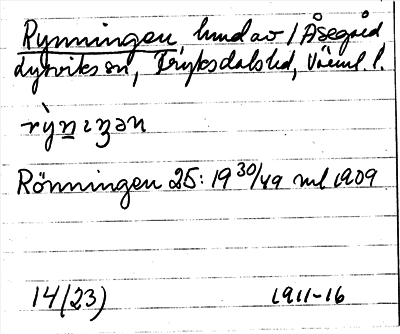 Rynningen hmd av 1 Åsegård
Lysviks sn, Fryksdals hd, Värml. l.
rỳnıŋən
Rönningen 25: 19 30/49 ml 1909
14(23) 1911-16